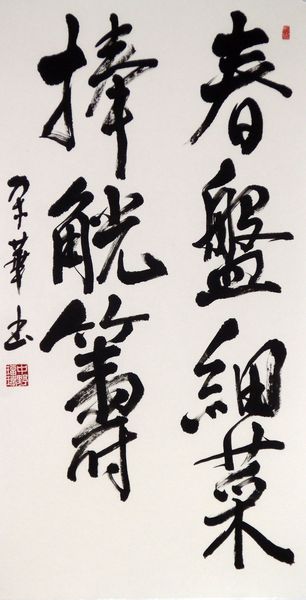 春盤細菜
捧觥籌
華书